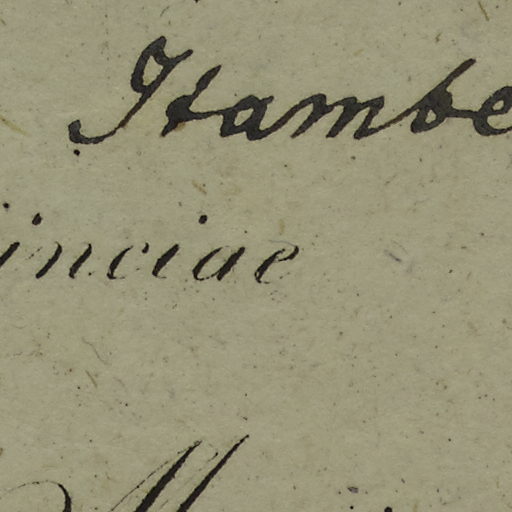 Itambe
inciae
M